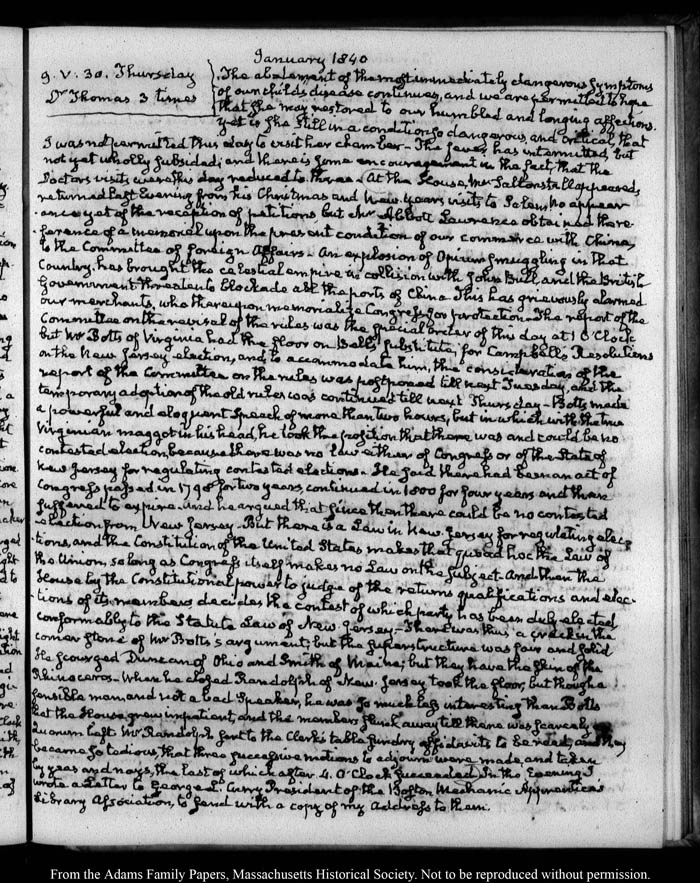 January 1840
9. V. 30. Thursday
Dr Thomas 3 times
The abatement of the most immediately dangerous symptoms
of our child's disease continues, and we are permitted to hope
that she may restored to our humbled and longing affections.
yet is she still in a condition so dangerous, and critical, that
I was not permitted this day to visit her chamber. The fever has intermitted, but
not yet wholly subsided; and there is some encouragement in the fact, that the
Doctors visits were this day reduced to three. At the House, Mr Saltonstall appeared,
returned last Evening from his Christmas and New years visit to Salem. No appear
ance yet of the reception of petitions, but Mr Abbott Lawrence obtained the re-
ference of a memorial upon the present condition of our commerce with China,
to the Committee of foreign Affairs. An explosion of Opium smuggling in that
Country, has brought the celestial empire in collision with John Bull, and the British
Government threaten to blockade all the ports of China This has grievously alarmed
our merchants, who thereupon memorialize Congress for protection. The report of the
Committee on the revisal of the rules was the special order of this day at 1 O'Clock
but Mr Botts of Virginia had the floor on Bell's substitute, for Campbell's Resolutions
on the New Jersey election, and to accommodate him, the consideration of the
report of the Committee on the rules was postponed till next Tuesday, and the
temporary adoption of the old rules was continued till next Thursday. Botts made
a powerful and eloquent Speech of more than two hours, but in which with the true
Virginian maggot in his head, he took the position that there was and could be no
contested election, because there was no law either of Congress or of the State of
New Jersey for regulating contested elections. He said there had been an act of
Congress passed in 1798 for two years, continued in 1800 for four years and then
suffered to expire. And he argued that since then there could be no contested
election from New Jersey. But there is a Law in New Jersey for regulating elec
tions, and the Constitution of the United States makes that quoad hoc the Law of
the Union, so long as Congress itself makes no Law on the subject. And then the
House by the Constitutional power to judge of the returns qualifications and elec-
tions of its members, decides the contest of which party has been duly elected
conformably to this Statute Law of New Jersey. There was thus a crack in the
corner stone of Mr Botts's argument; but the superstructure was fair and solid
He scourged Duncan of Ohio and Smith of Maine; but they have the skin of the
Rhinoceros. When he closed Randolph of New Jersey took the floor, but though a
sensible man and not a bad Speaker, he was so much less interesting than Botts
that the House grew impatient, and the members slunk away till there was scarcely a
Quorum left. Mr Randolph sent to the Clerk's table sundry affidavits to be read, and they
became so tedious, that three successive motions to adjourn were made, and taken
by yeas and nays, the last of which after 4. O'Clock succeeded. In the Evening I
wrote a Letter to George L. Curry President of the Boston Mechanic Apprentices
Library Association, to send with a copy of my Address to them.
From the Adams Family Papers, Massachusetts Historical Society. Not to be reproduced without permission.